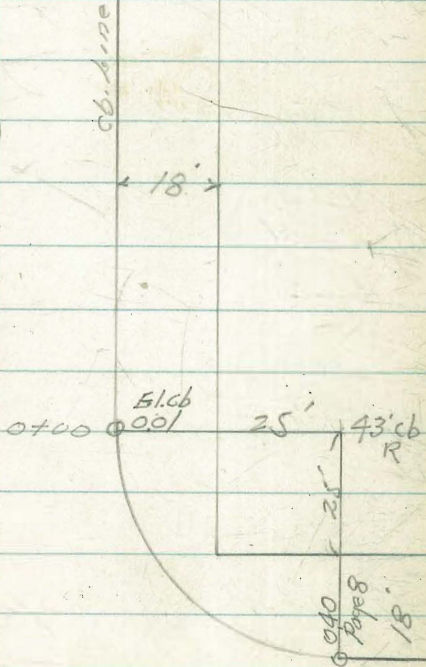 cb. Line
18'
El. cb
0+00 0.01 25' 43' cb
R
25'
0.40
Page 8
18'